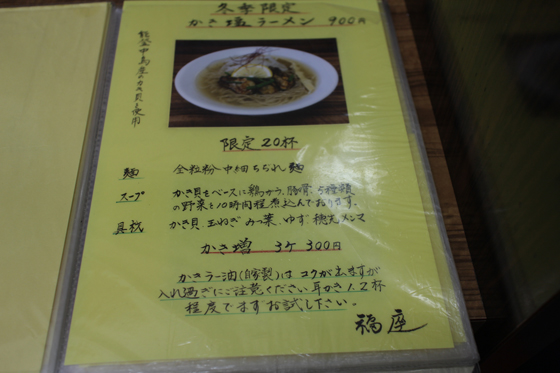 冬季限定
かき塩ラーメン 900円
能登中島産のかき貝を使用
限定20杯
麺 全粒粉中細ちぢれ麺
スープ かき貝をベースに鶏がら、豚骨、5種類
の野菜と10時間程煮込んでおります。
具材 かき貝 玉ねぎ みつ葉 ゆず 穂先メンマ
かき増 3ケ 300円
かきラー油(自家製)は コクが出ますが
入れ過ぎにご注意ください 耳かき1.2杯
程度でまずお試し下さい。
福座